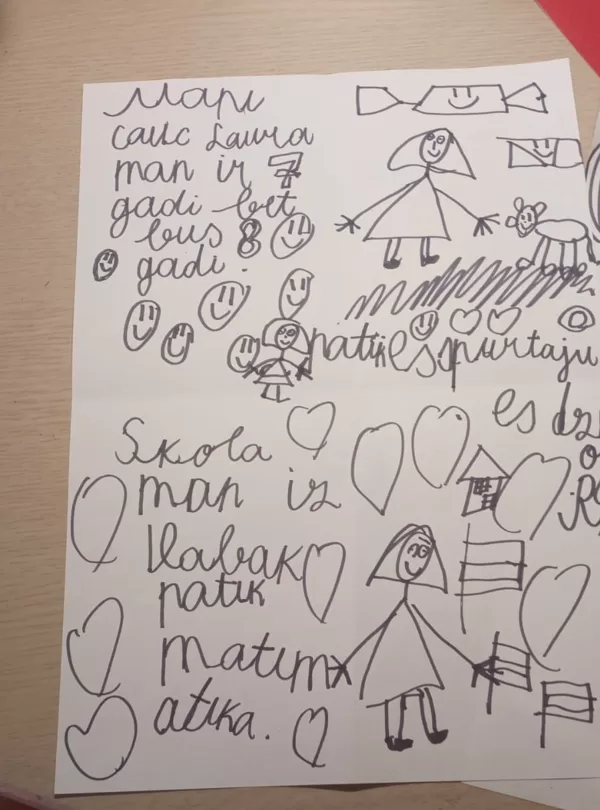 Mani
sauc Laura
man ir 7
gadi bet
bus 8
gadi.
patik es spurtaju
es dz
Skola
man is
vlabak
patik
matim
atika.